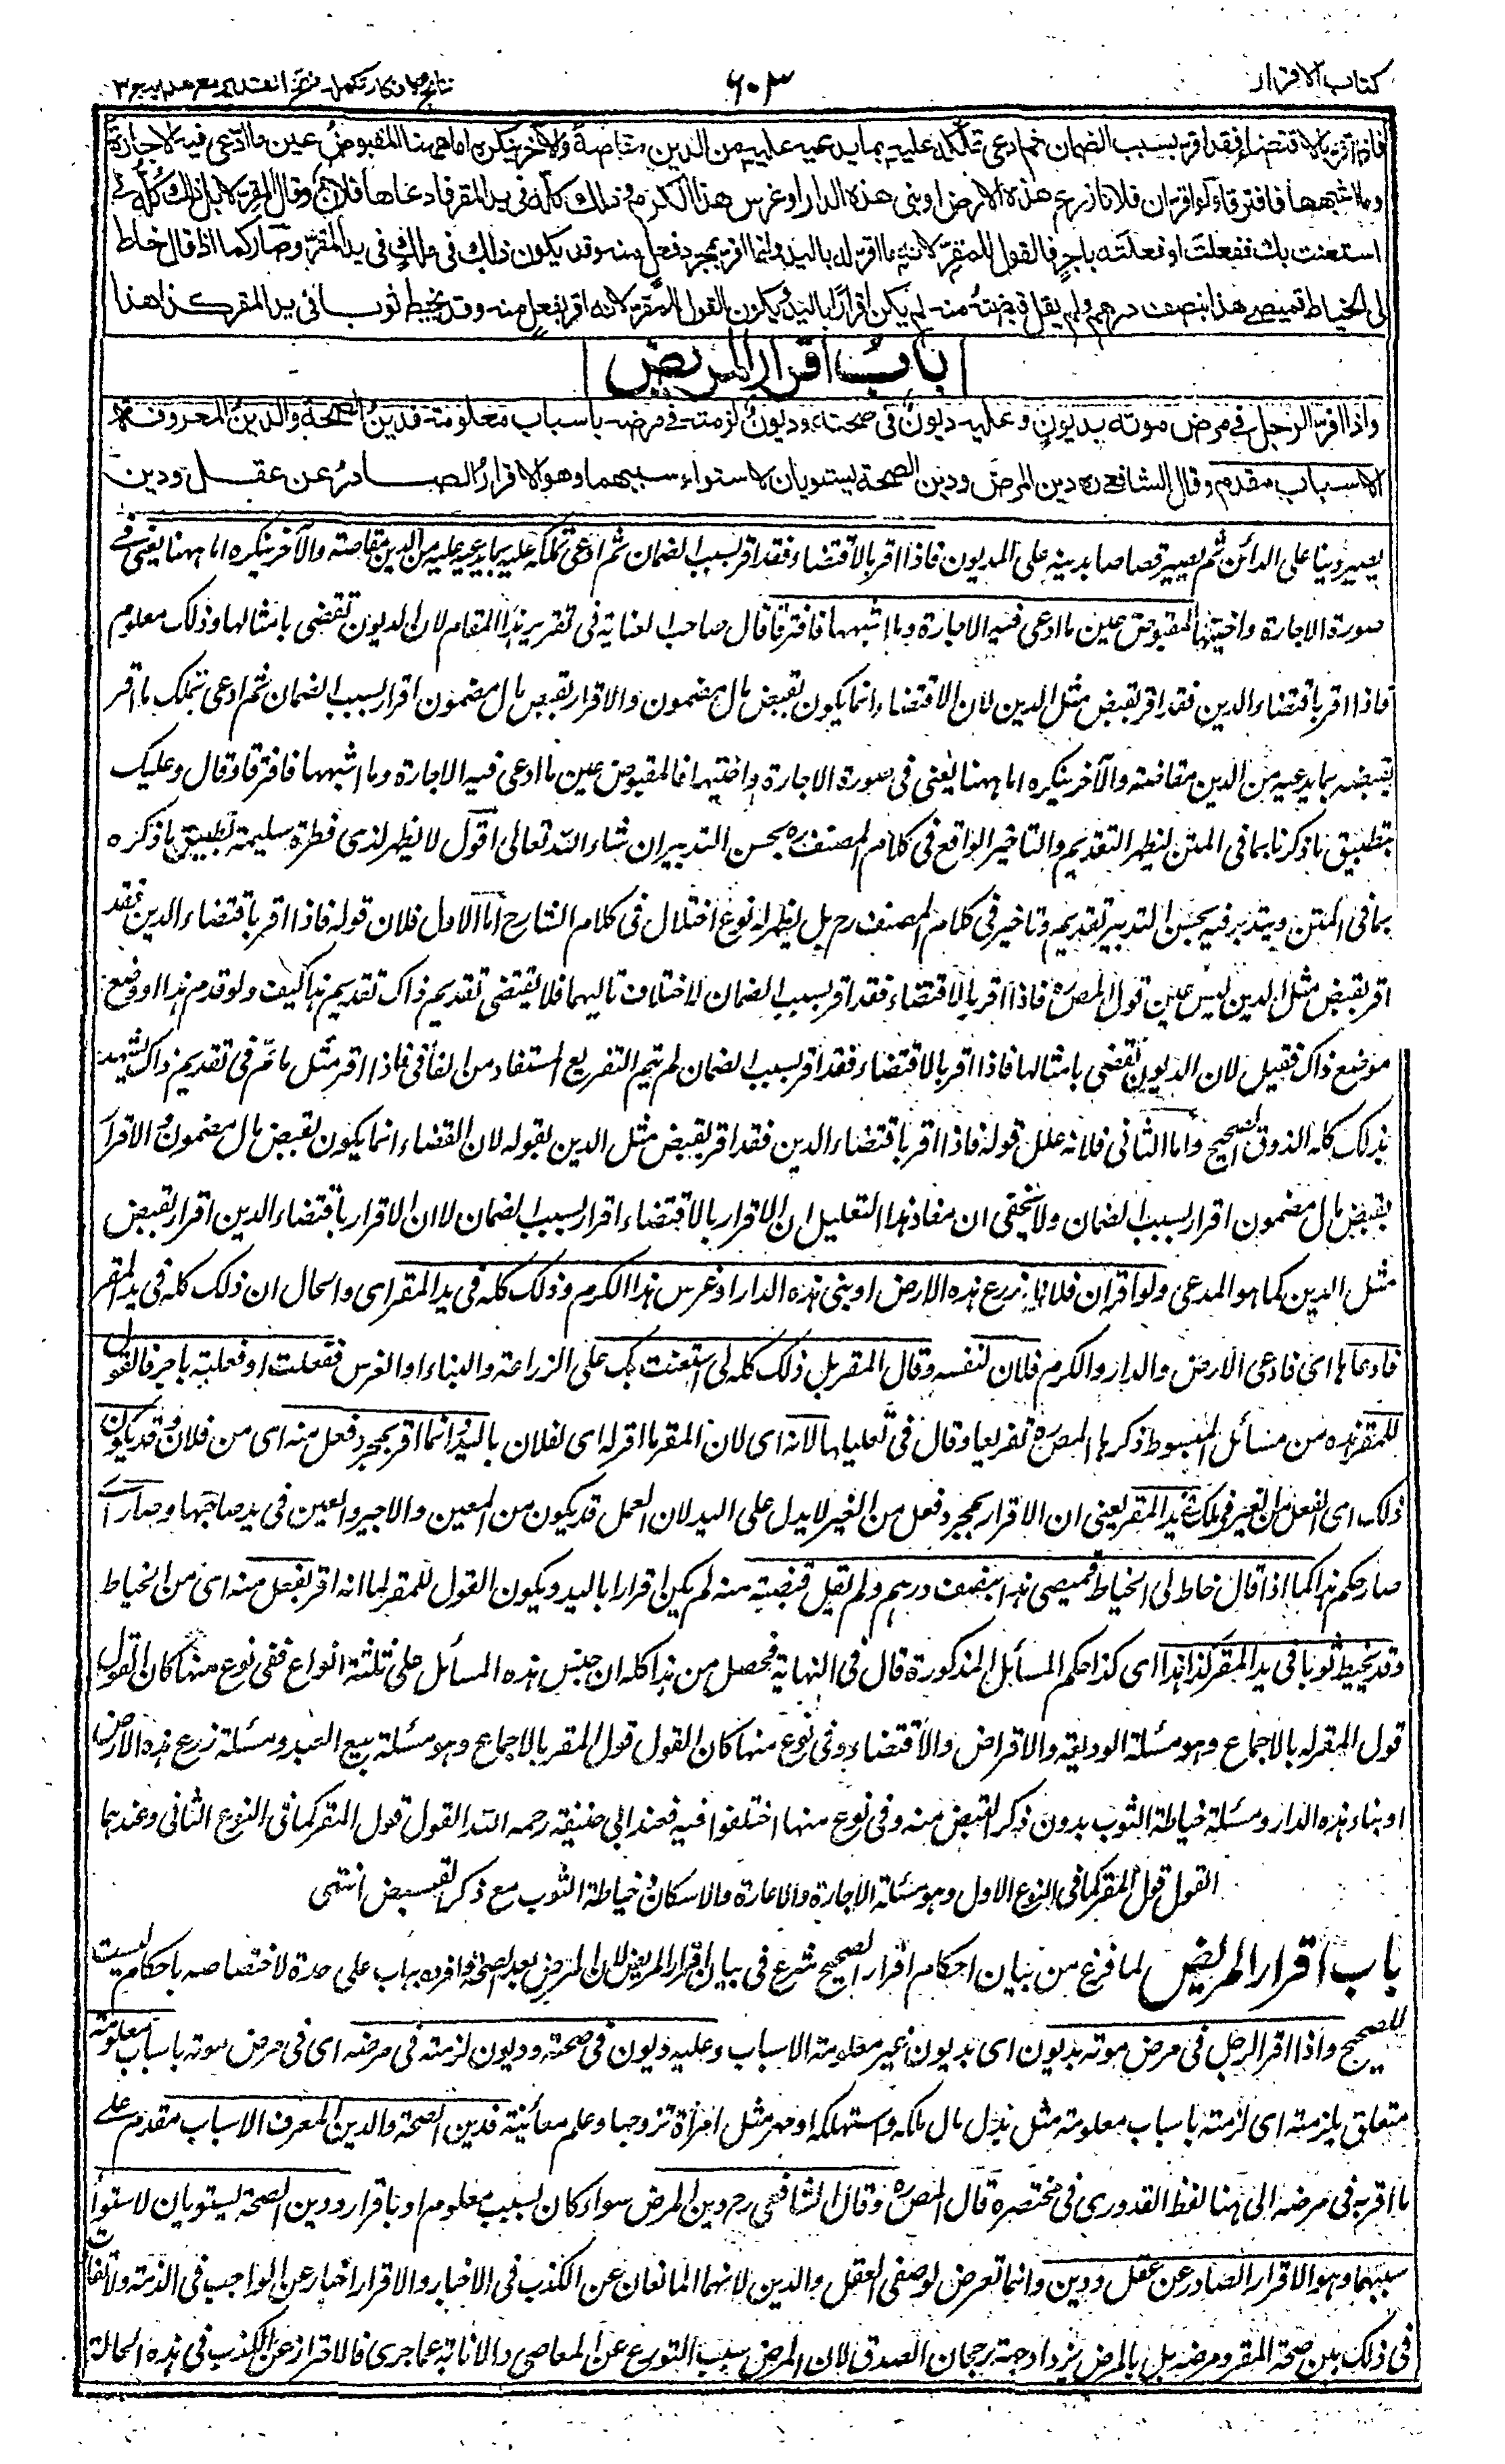 كتاب الاقرار
٦٠٣
نتائج الافكار تكملہ فتح القدير مع هدايہ ج ٣
فاذا اقر بالاقتضاء فقد اقر بسبب الضمان ثم ادعى تملكه عليه بما يدعيه عليه من الدين مقاصة والآخر ينكره اما ههنا المقبوض عين ما ادعى فيه الاجارة
وما اشبهها فافترقا ولو اقر ان فلانا زرع هذه الارض او بنى هذه الدار او غرس هذا الكرم وذلك كله فى يد المقر فادعاها فلان وقال المقر لا بل ذلك كله لى
استعنت بك ففعلت او فعلته باجر فالقول للمقر لانه ما اقر له باليد وانما اقر بمجرد فعل منه وقد يكون ذلك فى ملك فى يد المقر وصار كما اذا قال خاط
لى الخياط قميصى هذا بنصف درهم ولم يقل قبضته منه لم يكن اقرارا باليد ويكون القول للمقر لانه اقر بفعل منه وقد يخيط ثوبا فى يد المقر كذا هذا
باب اقرار المريض
واذا اقر الرجل فى مرض موته بديون وعليه ديون فى صحته وديون لزمته فى مرضه باسباب معلومة فدين الصحة والدين المعروف
الاسباب مقدم وقال الشافعى ره دين المرض ودين الصحة يستويان لاستواء سببهما وهو الاقرار الصادر عن عقل ودين
يصير دينا على الدائن ثم يصير قصاصا بدينه على المديون فاذا اقر بالاقتضاء فقد اقر بسبب الضمان ثم ادعى تملكه عليه بما يدعيه عليه من الدين مقاصة والآخر ينكره اما ههنا يعنى فى
صورة الاجارة واختيها المقبوض عين ما ادعى فيه الاجارة وما اشبهها فافترقا قال صاحب العناية فى تقرير هذا المقام لان الديون تقضى بامثالها وذلك معلوم
فاذا اقر باقتضاء الدين فقد اقر بقبض مثل الدين لان الاقتضاء انما يكون بقبض مال مضمون والاقرار بقبض مال مضمون اقرار بسبب الضمان ثم ادعى تملك ما اقر
بقبضه بما يدعيه من الدين مقاصة والآخر ينكره اما ههنا يعنى فى صورة الاجارة واختيها فالمقبوض عين ما ادعى فيه الاجارة وما اشبهها فافترقا وقال وعليك
بتطبيق ما ذكرنا بما فى المتن ليظهر التقديم والتاخير الواقع فى كلام المصنف ره بحسن التدبير ان شاء الله تعالى اقول لا يظهر لذى فطرة سليمة تطبيق ما ذكره
بما فى المتن ويتدبر فيه بحسن التدبير تقديم وتاخير فى كلام المصنف رح بل يظهر له نوع اختلال فى كلام الشارح اما الاول فلان قوله فاذا اقر باقتضاء الدين فقد
اقر بقبض مثل الدين ليس عين قول المصره فاذا اقر بالاقتضاء فقد اقر بسبب الضمان لاختلاف تاليهما فلا يقتضى تقديم ذاك تقديم هذا كيف ولو قدم هذا او وضع
موضع ذاك فقيل لان الديون تقضى بامثالها فاذا اقر بالاقتضاء فقد اقر بسبب الضمان لم يتم التفريع المستفاد من الفاء فى فاذا اقر مثل ما تم فى تقديم ذاك يشهد
بذلك كله الذوق الصحيح واما الثانى فلانه علل قوله فاذا اقر باقتضاء الدين فقد اقر بقبض مثل الدين بقوله لان القضاء انما يكون بقبض مال مضمون والاقرار
بقبض مال مضمون اقرار بسبب الضمان ولا يخفى ان مفاد هذا التعليل ان الاقرار بالاقتضاء اقرار بسبب الضمان لا ان الاقرار باقتضاء الدين اقرار بقبض
مثل الدين كما هو المدعى ولو اقر ان فلانا زرع هذه الارض او بنى هذه الدار او غرس هذا الكرم وذلك كله فى يد المقر اى والحال ان ذلك كله فى يد المقر
فادعاها اى فادعى الارض والدار والكرم فلان لنفسه وقال المقر بل ذلك كله لى استعنت بك على الزراعة والبناء او الغرس ففعلت او فعلته باجر فالقول
للمقر هذه من مسائل المبسوط ذكرها المصره تفريعا وقال فى تعليلها لانه اى لان المقر ما اقر له اى لفلان باليد وانما اقر بمجرد فعل منه اى من فلان وقد يكون
ذلك اى الفعل من الغير فى ملك فى يد المقر يعنى ان الاقرار بمجرد فعل من الغير لا يدل على اليد لان العمل قد يكون من المعين والاجير والعين فى يد صاحبها وصار اى
صار حكم هذا كما اذا قال خاط لى الخياط قميصى هذا بنصف درهم ولم يقل قبضته منه لم يكن اقرارا باليد ويكون القول للمقر لما انه اقر بفعل منه اى من الخياط
وقد يخيط ثوبا فى يد المقر كذا هذا اى كذا حكم المسائل المذكورة قال فى النهاية فحصل من هذا كله ان جنس هذه المسائل على ثلثة انواع ففى نوع منها كان القول
قول المقر له بالاجماع وهو مسئلة الوديعة والاقراض والاقتضاء وفى نوع منها كان القول قول المقر بالاجماع وهو مسئلة بيع العبد ومسئلة زرع هذه الارض
او بناء هذه الدار ومسئلة خياطة الثوب بدون ذكر القبض منه وفى نوع منها اختلفوا فيه فعند ابى حنيفة رحمه الله القول قول المقر كما فى النوع الثانى وعندهما
القول قول المقر كما فى النوع الاول وهو مسئلة الاجارة والاعارة والاسكان وخياطة الثوب مع ذكر القبض انتهى
باب اقرار المريض لما فرغ من بيان احكام اقرار الصحيح شرع فى بيان اقرار المريض لان المرض بعد الصحة وافرده بباب على حدة لاختصاصه باحكام ليست
للصحيح واذا اقر الرجل فى مرض موته بديون اى بديون غير معلومة الاسباب وعليه ديون فى صحته وديون لزمته فى مرضه اى فى مرض موته باسباب معلومة
متعلق بلزمته اى لزمته باسباب معلومة مثل بدل مال ملكه واستهلكه او مهر مثل امرأة تزوجها وعلم معائنة فدين الصحة والدين المعرف الاسباب مقدم على
ما اقر به فى مرضه الى هنا لفظ القدورى فى مختصره قال المصره وقال الشافعى رح دين المرض سواء كان بسبب معلوم او باقرار ودين الصحة يستويان لاستواء
سببهما وهو الاقرار الصادر عن عقل ودين وانما تعرض لوصفى العقل والدين لانهما المانعان عن الكذب فى الاخبار والاقرار اخبار عن الواجب فى الذمة ولا تفاوت
فى ذلك بين صحة المقر ومرضه بل بالمرض يزداد جهة رجحان الصدق لان المرض سبب التورع عن المعاصى والانابة عما جرى فالاقرار عن الكذب فى هذه الحالة